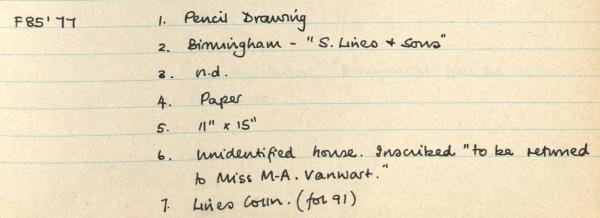 F85'77
1. Pencil Drawing
2. Birmingham - "S. Lines + Sons"
3. n.d.
4. Paper
5. 11" x 15"
6. Unidentified house. Inscribed "to be returned
to Miss M-A. Vanwart."
7. Lines Colln. (fol 91)